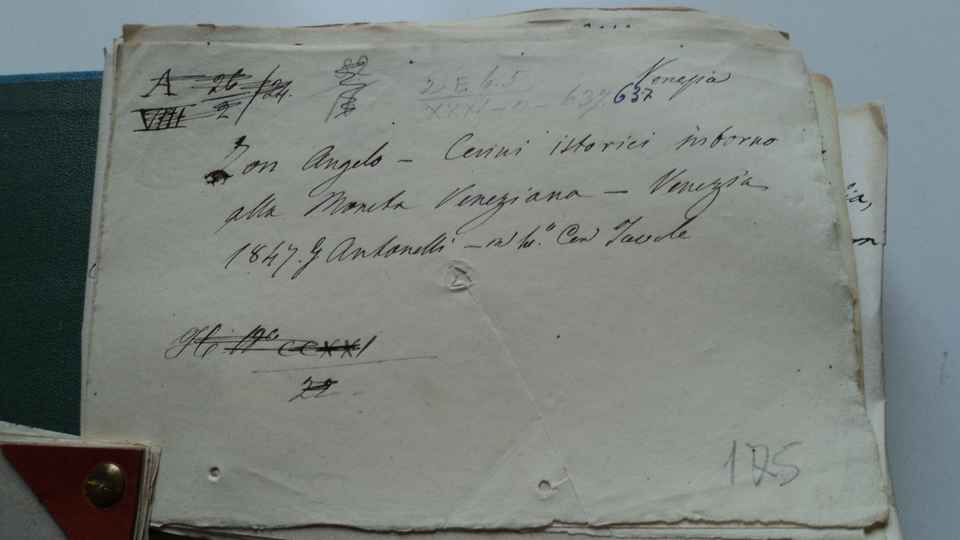 A 26
VIII 2
Venezia
637 637
Zon Angelo – Cenni istorici intorno
alla Moneta Veneziana – Venezia
1847. G Antonelli – in 4o. Con Tavole
CCXXI
22
175